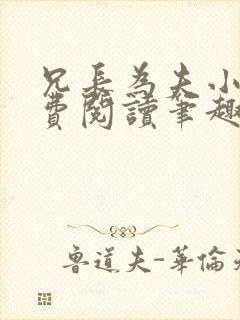 兄長為夫小
費閱讀筆趣
魯道夫-華倫